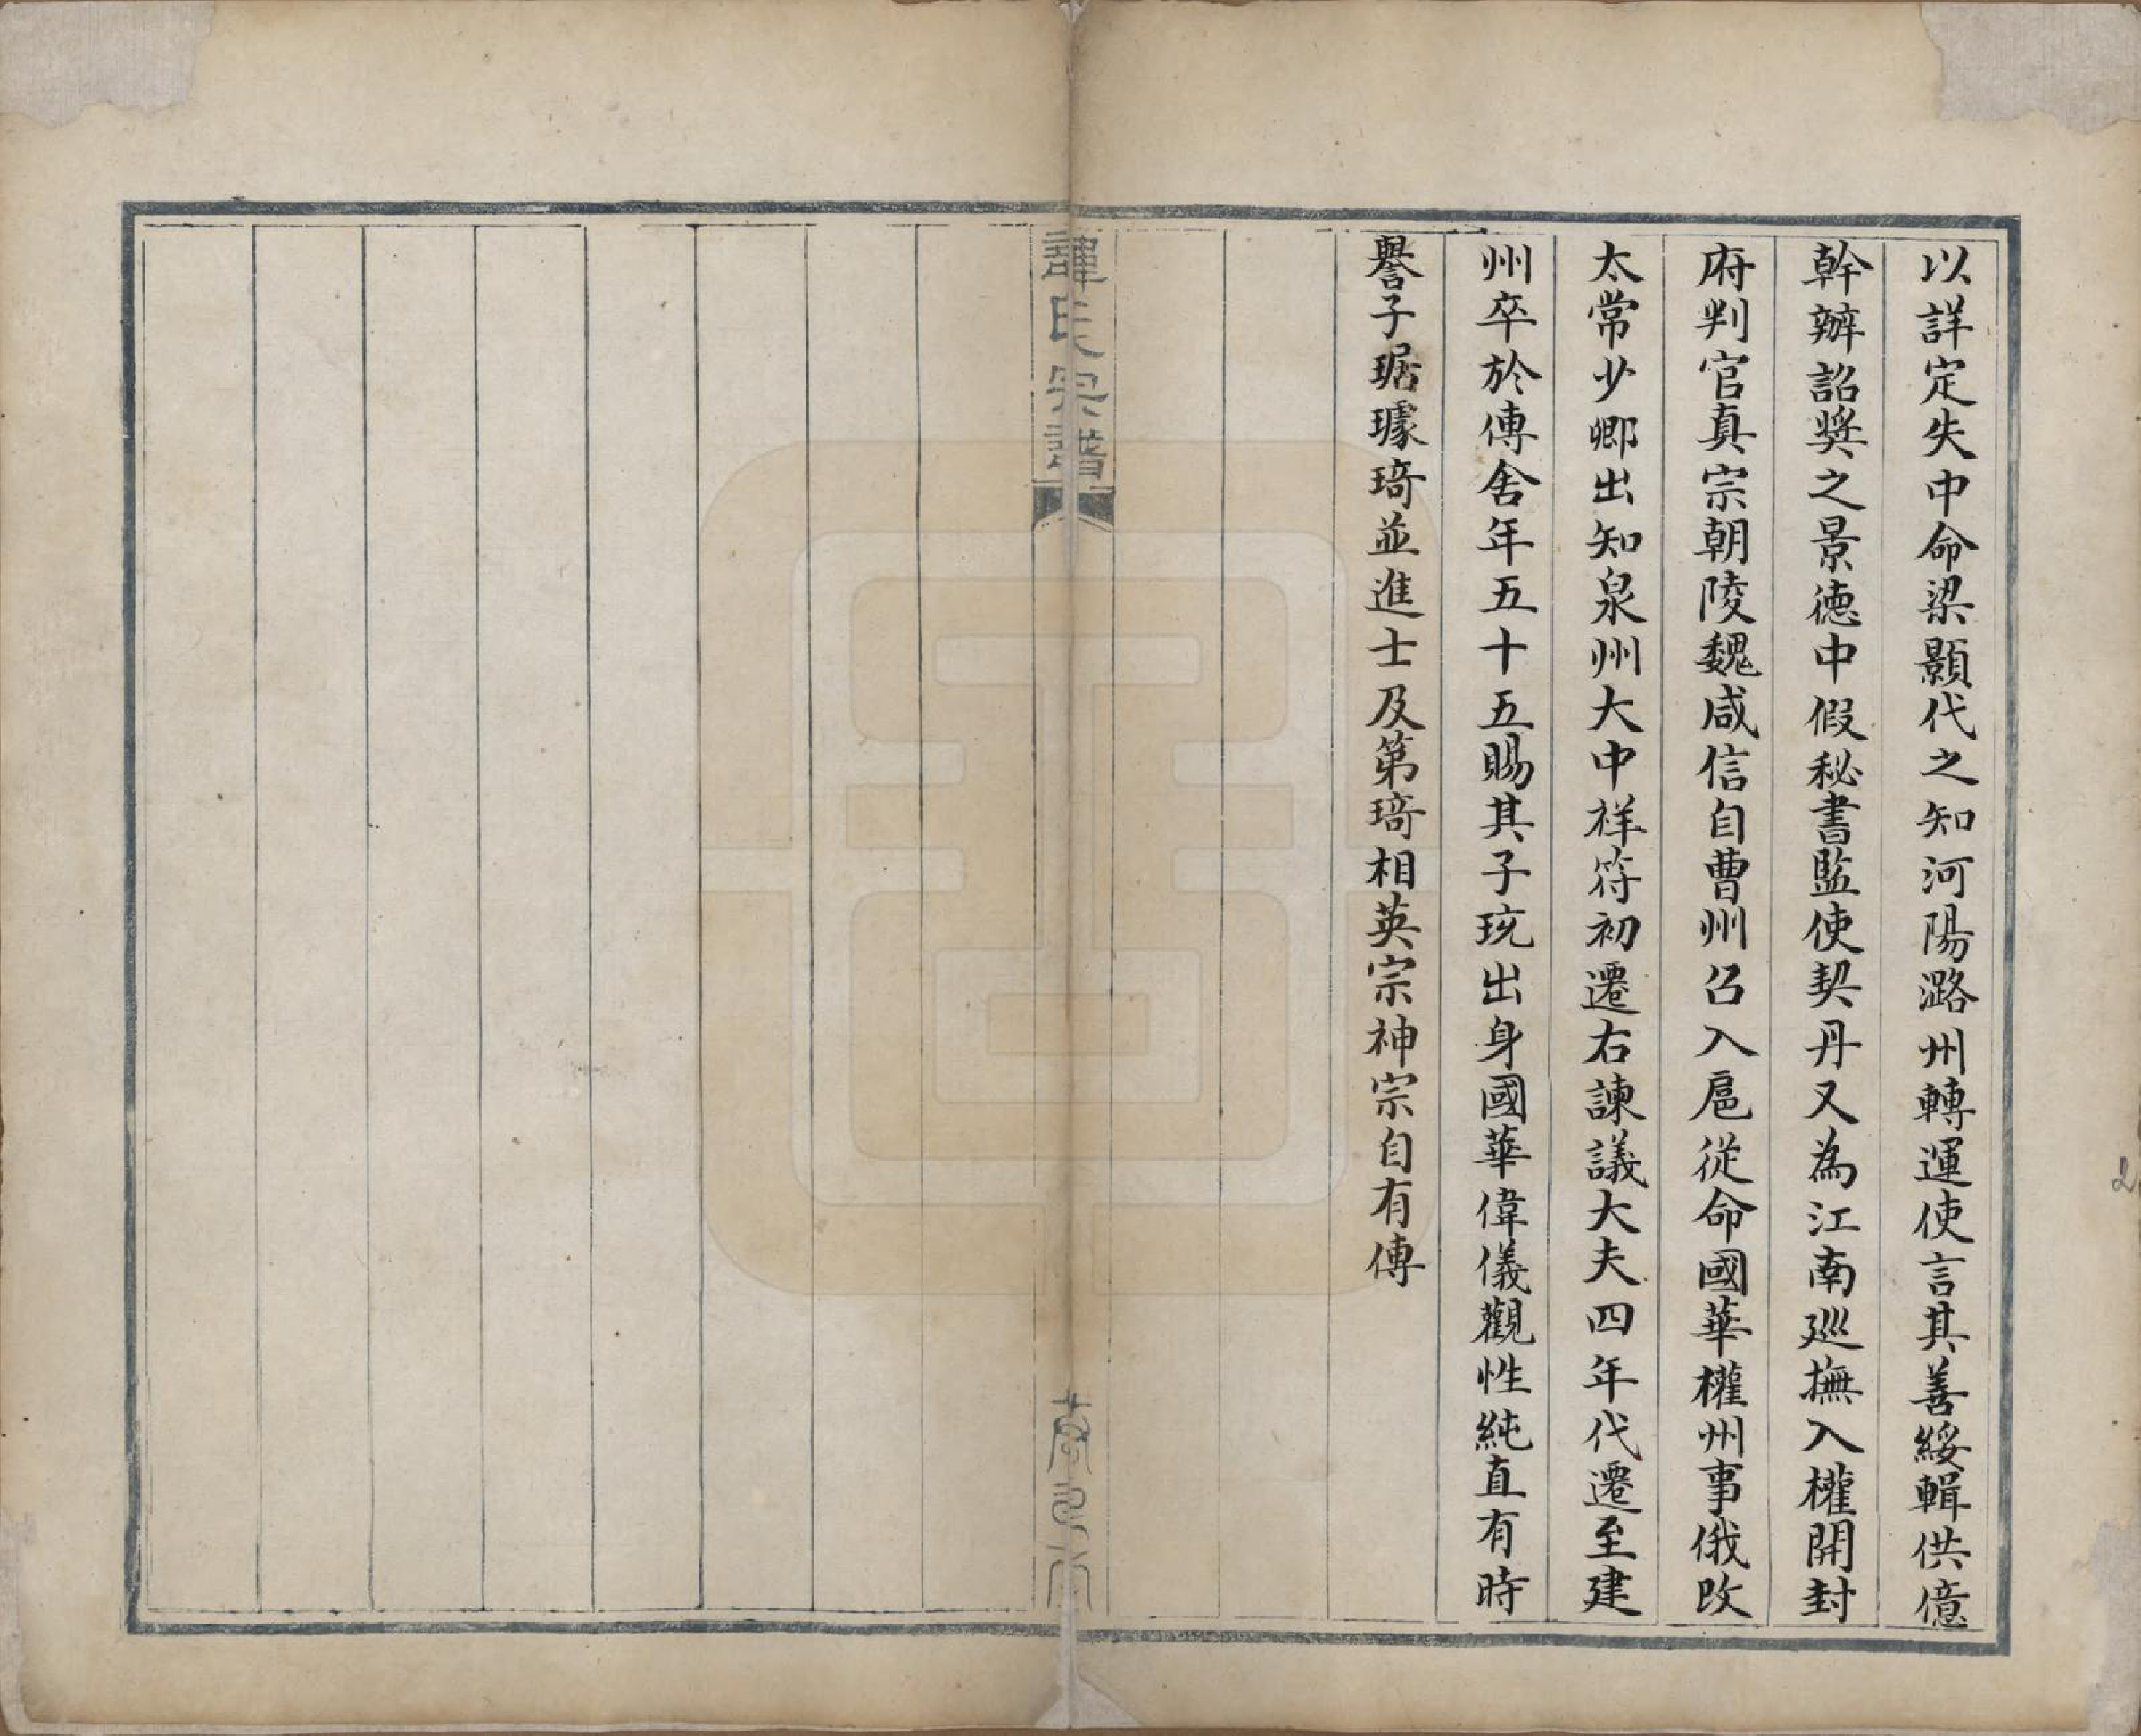 以詳定失中命梁顥代之知河陽潞州轉運使言其善綏輯供億
幹辦詔獎之景徳中假秘書監使契丹又為江南廵撫入權開封
府判官真宗朝陵魏咸信自曹州召入扈從命國華權州事俄改
太常少卿出知泉州大中祥符初遷右諫議大夫四年代還至建
州卒於傳舍年五十五賜其子珫出身國華偉儀觀性純直有時
譽子琚璩琦並進士及第琦相英宗神宗自有傳
氏宗譜